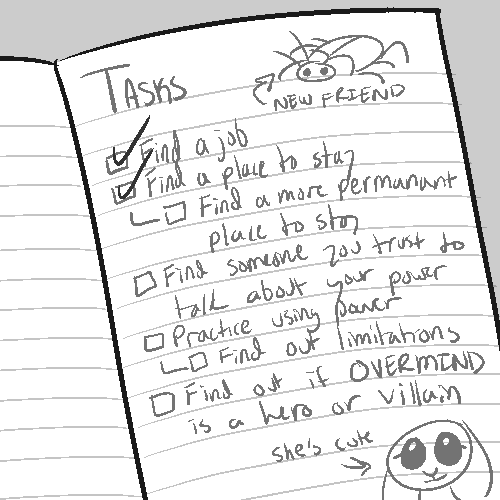 TASKS
NEW FRIEND
Find a job
Find a place to stay
Find a more permanant
place to stay
Find someone you trust to
talk about your power
Practice using power
Find out limitations
Find out if OVERMIND
is a hero or villain
she's cute